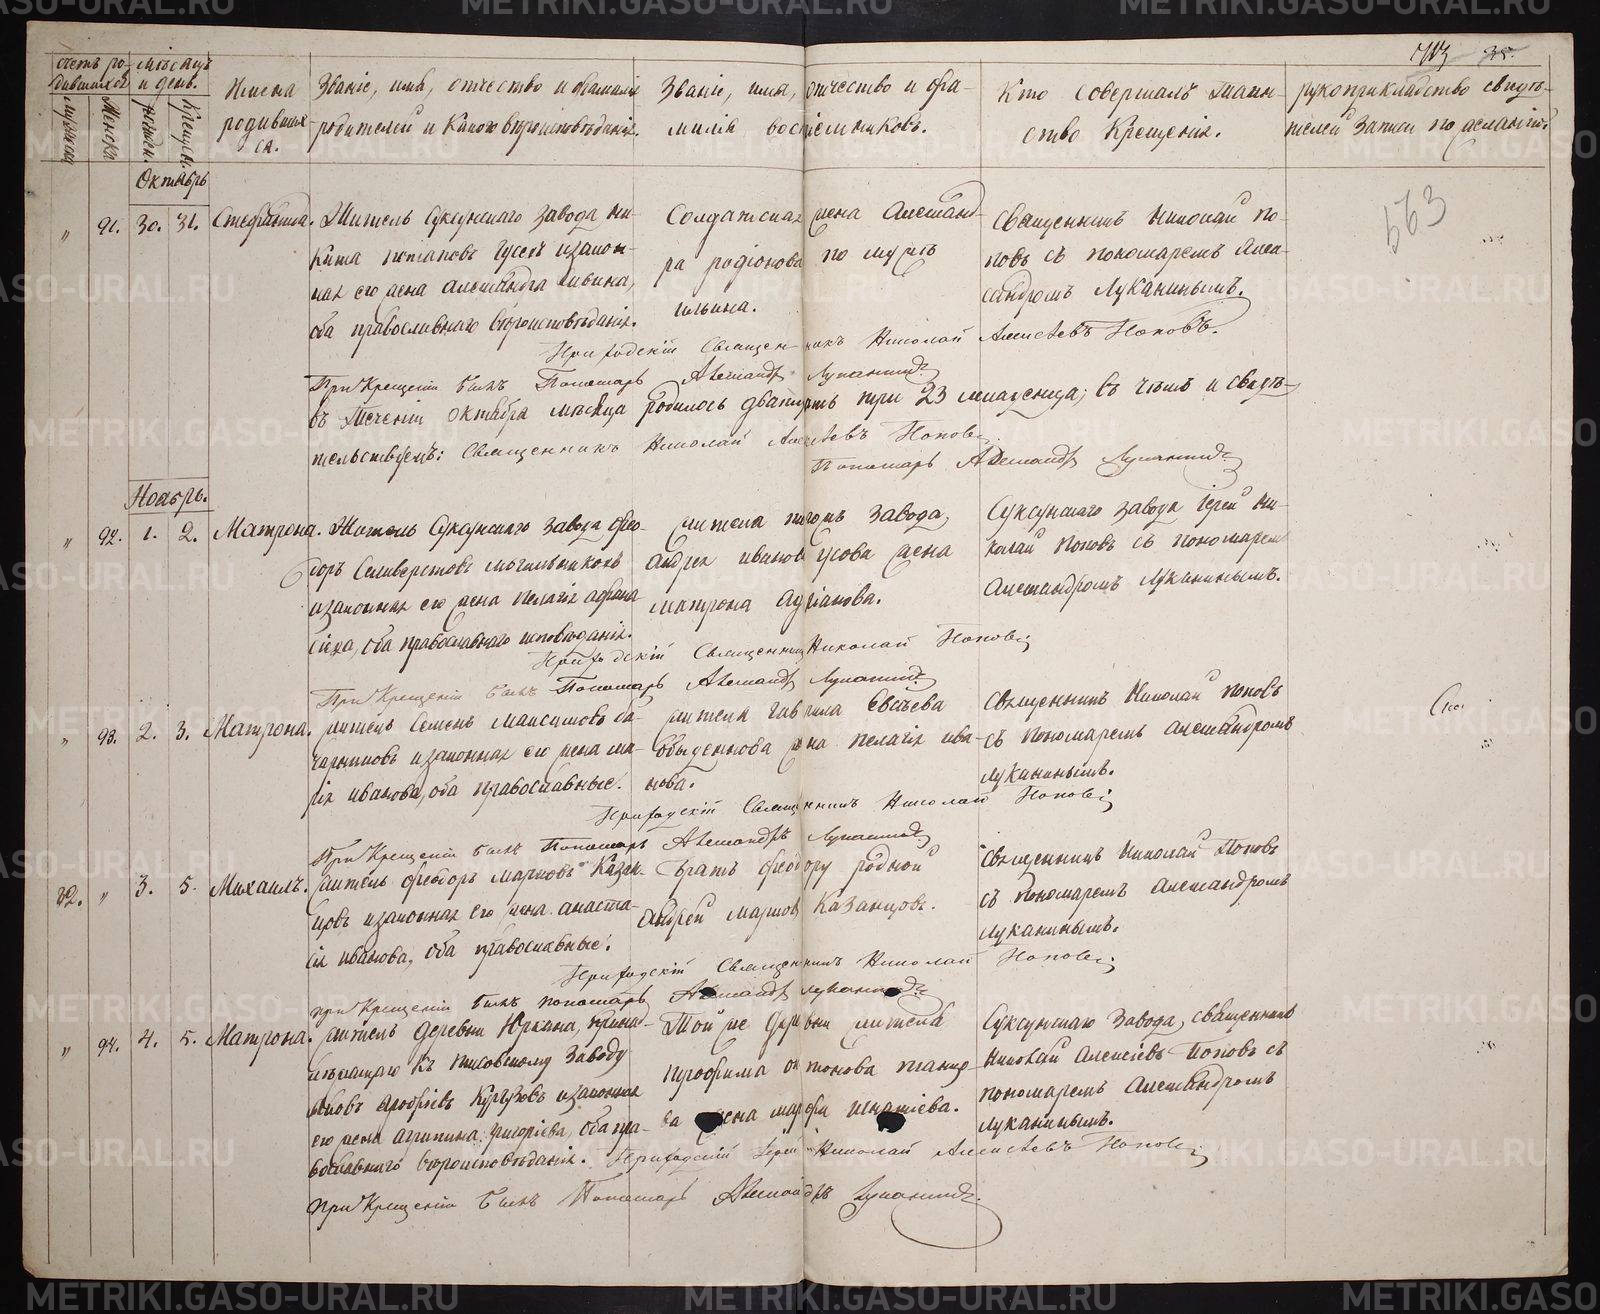 METRIKI.GASO-URAL.RU
счетъ ро-
дившихся
мѣсяцъ
и день.
мужска
Женска
рожден.
Крещен.
Имена
родивших-
ся.
Званіе, имя, отчество и фамилія
родителей и Какого вѣроисповѣданія.
Званіе, имя, отчество и фа-
милія воспріемниковъ.
Кто совершалъ таин-
ство Крещенія.
рукоприкладство свидѣ-
телей записи по желанію.
Октябрь
" 91. 30. 31.
Житель Суксунскаго завода Ни-
кита потаповъ Гусевъ и закон-
ная его жена Александра
оба православнаго вѣроисповѣданія.
Солдатская жена Александ-
ра родіонова по мужѣ
ильина.
Священникъ Николай По-
повъ съ пономаремъ Алек-
сандромъ Луканинымъ.
Приходскій Священникъ Николай Алексѣевъ Поповъ.
При Крещеніи былъ Пономарь Александръ Луканинъ
въ Теченіи октября мѣсяца родилось двапцать три 23 младенца; въ чемъ и свидѣ-
тельствуемъ: Священникъ Николай Алексѣевъ Поповъ
Пономарь Александръ Луканинъ
563
Ноябрь.
" 92. 1. 2. Матрона.
Житель Суксунскаго завода Фео-
доръ Селиверстовъ могильниковъ
и законная его жена Пелагія
оба православнаго исповѣданія.
жителя завода,
Андрея иванова Гусова жена
матрона
Суксунскаго завода Іерей Ни-
колай Поповъ съ пономаремъ
Александромъ Луканинымъ.
Приходскій Священникъ Николай Поповъ
При Крещеніи былъ Пономарь Александръ Луканинъ
" 93. 2. 3. Матрона.
житель Семенъ Максимовъ
и законная его жена ма-
рія иванова, оба православные.
жителя Гаврила Евсѣева
жена пелагія ива-
нова.
Священникъ Николай Поповъ
съ пономаремъ Александромъ
Луканинымъ.
Приходскій Священникъ Николай Поповъ
При Крещеніи былъ Пономарь Александръ Луканинъ
32. " 3. 5. Михаилъ.
житель Феодоръ Марковъ Казан-
цовъ и законная его жена анаста-
сія иванова, оба православные.
братъ Феодору родной
Андрей марковъ Казанцовъ.
Священникъ Николай Поповъ
съ пономаремъ Александромъ
Луканинымъ.
Приходскій Священникъ Николай Поповъ
при Крещеніи былъ пономарь Александръ Луканинъ
" 94. 4. 5. Матрона.
житель деревни Юркана, прина-
лежащаго къ заводу
и законная
его жена агрипина григорьева, оба пра-
вославнаго вѣроисповѣданія.
Той же деревни жителя
трофима
жена марфа игнатіева.
Суксунскаго завода, священникъ
Николай Алексіевъ Поповъ съ
пономаремъ Александромъ
Луканинымъ.
Приходскій Іерей Николай Алексѣевъ Поповъ
При Крещеніи былъ Пономарь Александръ Луканинъ.
METRIKI.GASO-URAL.RU